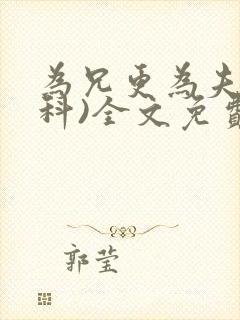 為兄更為夫
科)全文免費
郭莹